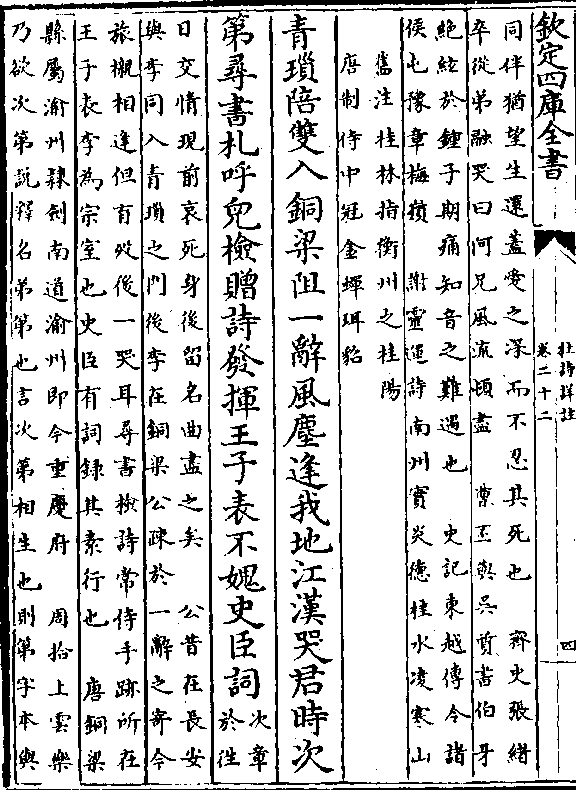 欽定四庫全書
杜詩詳註
卷二十二
四
同伴猶望生還蓋愛之深而不忍其死也 齊史張緒
卒從弟融哭曰阿兄風流頓盡 曹丕與吳質書伯牙
絶絃於鍾子期痛知音之難遇也 史記東越傳令諸
侯屯豫章梅嶺 謝靈運詩南州實炎德桂水凌寒山
舊注桂林指衡州之桂陽
唐制侍中冠金蟬珥貂
青瑣陪雙入銅梁阻一辭風塵逢我地江漢哭君時次
第尋書札呼兒檢贈詩發揮王子表不媿史臣詞
次章
於往
日交情現前哀死身後留名曲盡之矣 公昔在長安
與李同入青瑣之門後李在銅梁公疎於一辭之寄今
旅櫬相逢但有歿後一哭耳尋書檢詩常侍手跡所在
王子表李為宗室也史臣有詞録其素行也 唐銅梁
縣屬渝州隸劍南道渝州即今重慶府 周拾上雲樂
乃欲次第說釋名弟第也言次第相生也則第字本與